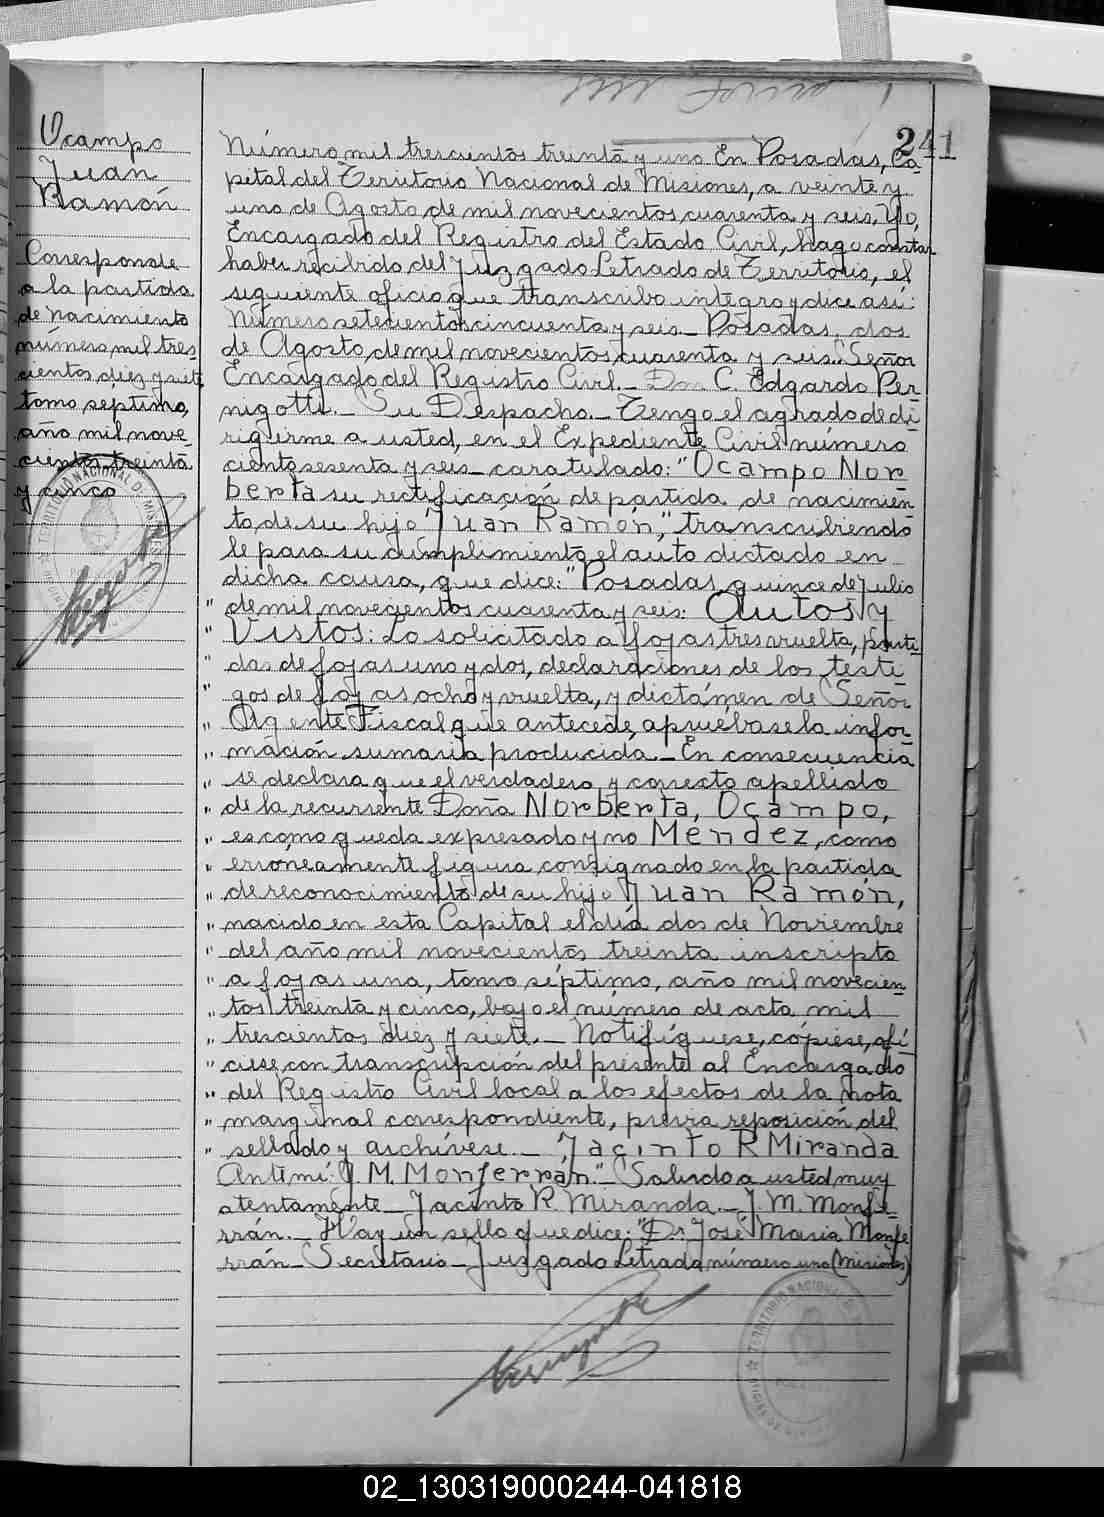 241
Ocampo
Juan
Ramón
Corresponde
a la partida
de nacimiento
número mil tres-
cientos diez y siete
tomo septimo,
año mil nove-
cientos treinta
y cinco
Número mil trescientos treinta y uno En Posadas, Ca-
pital del Territorio Nacional de Misiones, a veinte y
uno de Agosto de mil novecientos cuarenta y seis, Yo,
Encargado del Registro del Estado Civil, hago constar
haber recibido del Juzgado Letrado de Territorio, el
siguiente oficio que transcribo integro y dice así:
Número setecientos cincuenta y seis_ Posadas, dos
de Agosto, de mil novecientos cuarenta y seis. Señor
Encargado del Registro Civil._ Don C. Edgardo Per-
nigotti._ Su Despacho._ Tengo el agrado de di-
rigirme a usted, en el Expediente Civil número
ciento sesenta y seis_ caratulado: "Ocampo Nor-
berta su rectificación de partida de nacimien-
to de su hijo Juan Ramón," transcribiendo
le para su cumplimiento el auto dictado en
dicha causa, que dice: "Posadas, quince de Julio
" de mil novecientos cuarenta y seis: Autos y
" Vistos: Lo solicitado a fojas tres vuelta, parti-
" das de fojas uno y dos, declaraciones de los testi-
" gos de fojas ocho y vuelta, y dictámen de Señor
" Agente Fiscal que antecede, apruébase la infor-
" mación sumaria producida._ En consecuencia
" se declara que el verdadero y correcto apellido
" de la recurrente Doña Norberta, Ocampo,
" es como queda expresado y no Méndez, como
" erróneamente figura consignado en la partida
" de reconocimiento de su hijo Juan Ramón,
" nacido en esta Capital el día dos de Noviembre
" del año mil novecientos treinta inscripto
" a fojas una, tomo séptimo, año mil novecien-
" tos treinta y cinco, bajo el número de acta mil
" trescientos diez y siete._ Notifíquese, cópiese, ofí-
" ciese, con transcripción del presente al Encargado
" del Registro Civil local a los efectos de la nota
" marginal correspondiente, previa reposición del
" sellado y archívese._ Jacinto R Miranda
Antimí: J. M. Monferrán."_ Saludo a usted muy
atentamente_ Jacinto R. Miranda._ J. M. Monfe-
rrán._ Hay un sello que dice: "Dr José Maria Monfe
rrán_ Secretario_ Juzgado Letrado número uno (Misiones)
02_130319000244-041818